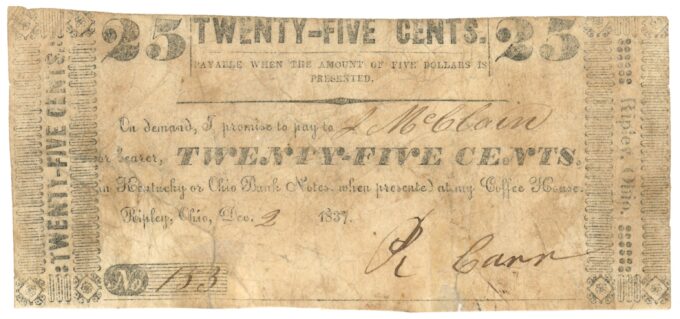 25 TWENTY-FIVE CENTS. 25
PAYABLE WHEN THE AMOUNT OF FIVE DOLLARS IS
PRESENTED.
On demand, I promise to pay to J McClain
or bearer, TWENTY-FIVE CENTS,
in Kentucky or Ohio Bank Notes, when presented at my Coffee House.
Ripley, Ohio, Dec. 2 1837.
R Carr
No 153
TWENTY-FIVE CENTS.
Ripley, Ohio.